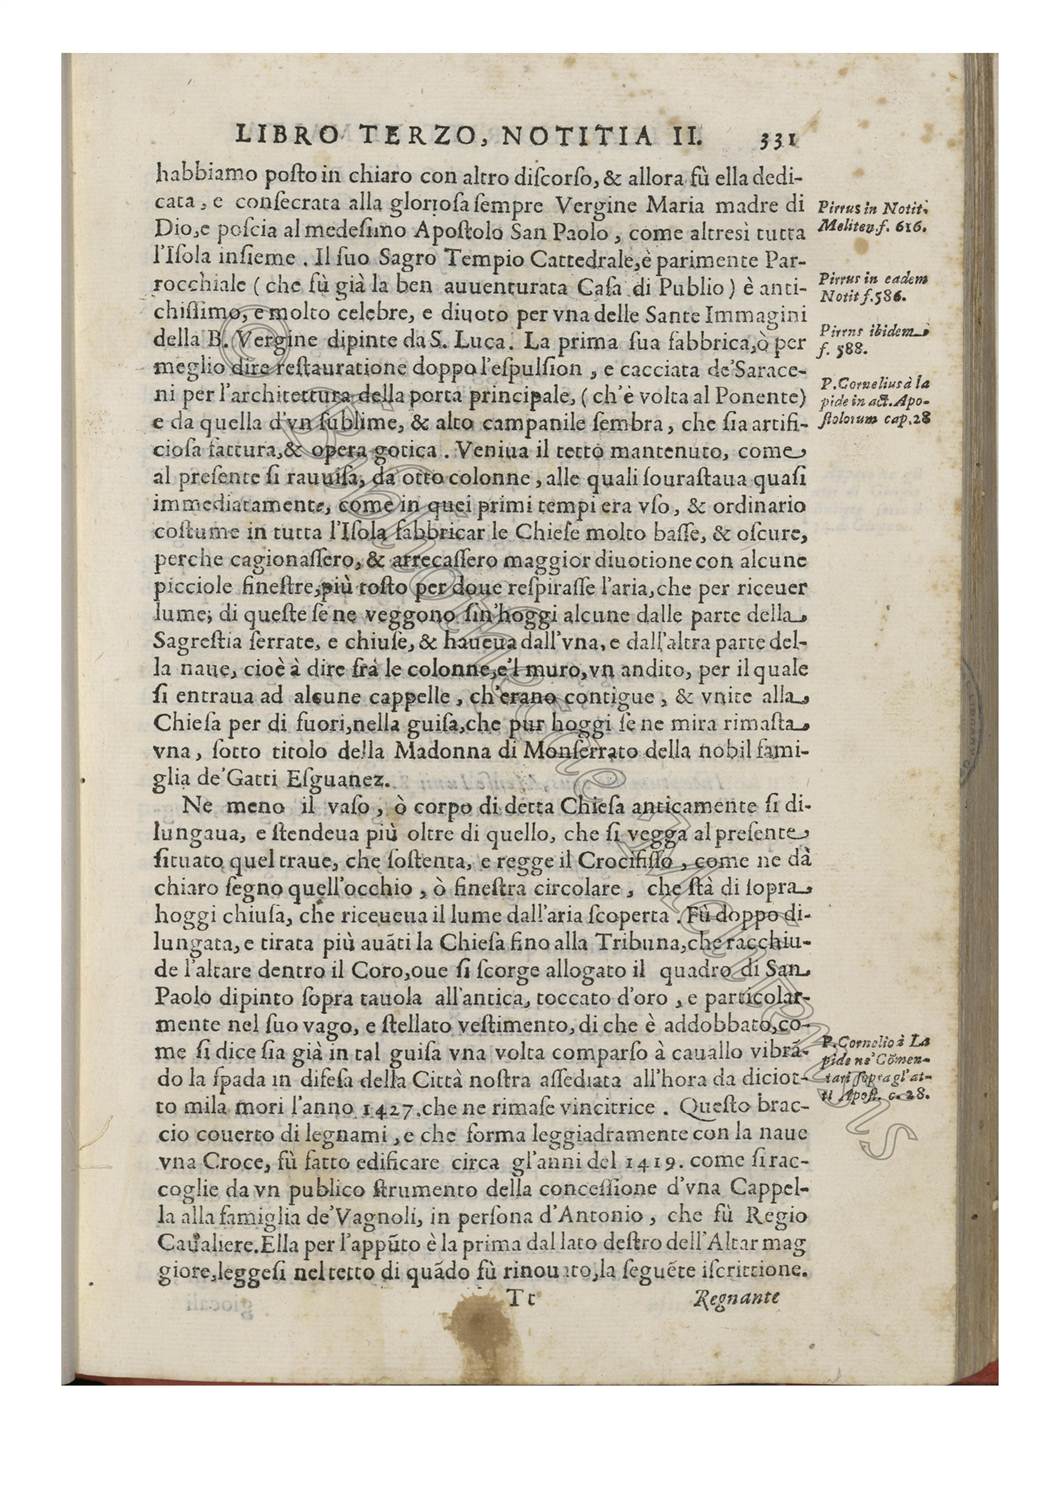 LIBRO TERZO, NOTITIA II. 331
habbiamo poſto in chiaro con altro diſcorſo, & allora fù ella dedi-
cata, e conſecrata alla glorioſa ſempre Vergine Maria madre di
Dio, e poſcia al medeſimo Apoſtolo San Paolo, come altresì tutta
l'Iſola inſieme. Il ſuo Sagro Tempio Cattedrale, è parimente Par-
rocchiale (che fù già la ben auuenturata Caſa di Publio) è anti-
chiſſimo, e molto celebre, e diuoto per vna delle Sante Immagini
della B. Vergine dipinte da S. Luca. La prima ſua fabbrica, ò per
meglio dire reſtauratione doppo l'eſpulſion, e cacciata de'Sarace-
ni per l'architettura della porta principale, (ch'è volta al Ponente)
e da quella d'vn ſublime, & alto campanile ſembra, che ſia artifi-
cioſa fattura, & opera gotica. Veniua il tetto mantenuto, come
al preſente ſi rauuiſa, da otto colonne, alle quali ſouraſtaua quaſi
immediatamente, come in quei primi tempi era vſo, & ordinario
coſtume in tutta l'Iſola fabbricar le Chieſe molto baſſe, & oſcure,
perche cagionaſſero, & arrecaſſero maggior diuotione con alcune
picciole fineſtre, più toſto per doue reſpiraſſe l'aria, che per riceuer
lume; di queſte ſe ne veggono ſin'hoggi alcune dalle parte della
Sagreſtia ſerrate, e chiuſe, & haueua dall'vna, e dall'altra parte del-
la naue, cioè à dire frà le colonne, e'l muro, vn andito, per il quale
ſi entraua ad alcune cappelle, ch'erano contigue, & vnite alla
Chieſa per di fuori, nella guiſa, che pur hoggi ſe ne mira rimaſta
vna, ſotto titolo della Madonna di Monſerrato della nobil fami-
glia de'Gatti Eſguanez.
Ne meno il vaſo, ò corpo di detta Chieſa anticamente ſi di-
lungaua, e ſtendeua più oltre di quello, che ſi vegga al preſente
ſituato quel traue, che ſoſtenta, e regge il Crocifiſſo, come ne dà
chiaro ſegno quell'occhio, ò fineſtra circolare, che ſtà di ſopra
hoggi chiuſa, che riceueua il lume dall'aria ſcoperta. Fù doppo di-
lungata, e tirata più auãti la Chieſa fino alla Tribuna, che racchiu-
de l'altare dentro il Coro, oue ſi ſcorge allogato il quadro di San
Paolo dipinto ſopra tauola all'antica, toccato d'oro, e particolar-
mente nel ſuo vago, e ſtellato veſtimento, di che è addobbato, co-
me ſi dice ſia già in tal guiſa vna volta comparſo à cauallo vibrã-
do la ſpada in difeſa della Città noſtra aſſediata all'hora da diciot-
to mila mori l'anno 1427. che ne rimaſe vincitrice. Queſto brac-
cio couerto di legnami, e che forma leggiadramente con la naue
vna Croce, fù fatto edificare circa gl'anni del 1419. come ſi rac-
coglie da vn publico ſtrumento della conceſſione d'vna Cappel-
la alla famiglia de'Vagnoli, in perſona d'Antonio, che fù Regio
Caualiere. Ella per l'appũto è la prima dal lato deſtro dell'Altar mag
giore, leggeſi nel tetto di quãdo fù rinouato, la ſeguẽte iſcrittione.
Tt Regnante
Pirrus in Notit.
Meliten. f. 616.
Pirrus in eadem
Notit f. 586.
Pirrus ibidem
f. 588.
P. Cornelius à la
pide in act. Apo-
ſtolorum cap. 28
P. Cornelio à La
pide ne' Cõmen-
tari ſopra gl'at-
ti Apoſt. c. 28.
© Bibliotheca Melitensis